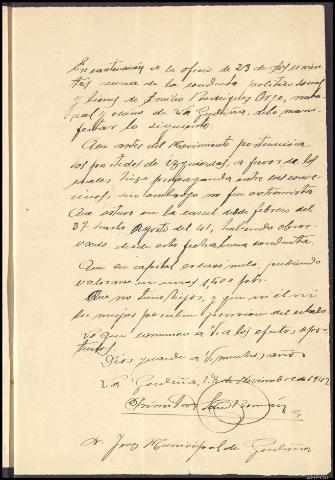 En contestación a su oficio de 23 de los corrien
tes acerca de la conducta politico social
y bienes de Emilio Rodriguez, natu
ral y vecino de La Gudiña, debo mani
festar lo siguiente.
Que antes del Movimiento pertenecia a
los partidos de izquierdas, a favor de los
cuales hizo propaganda entre sus conve
cinos, sin embargo no fue extremista
Que estuvo en la carcel desde febrero del
37 hasta Agosto del 41, habiendo obser
vado desde esta fecha buena conducta.
Que su capital es casi nulo, pudiendo
valorarse en unas 1,500 pts.
Que no tiene hijos, y que ni él ni
su mujer perciben pension del estado
Lo que comunico a V. a los efectos opor
tunos
Dios guarde a V. muchos años
La Gudiña, de Noviembre de 1942
Sr. Juez Municipal de Gudiña